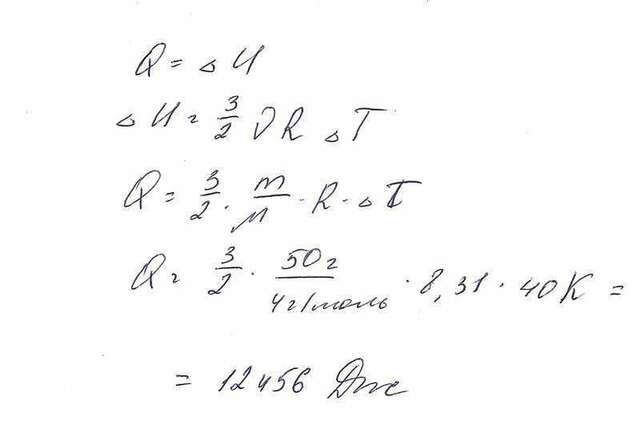 Q = ΔU
ΔU = 3/2 νR ΔT
Q = 3/2 · m/M · R · ΔT
Q = 3/2 · 50г/4г/моль · 8,31 · 40К =
= 12456 Дж